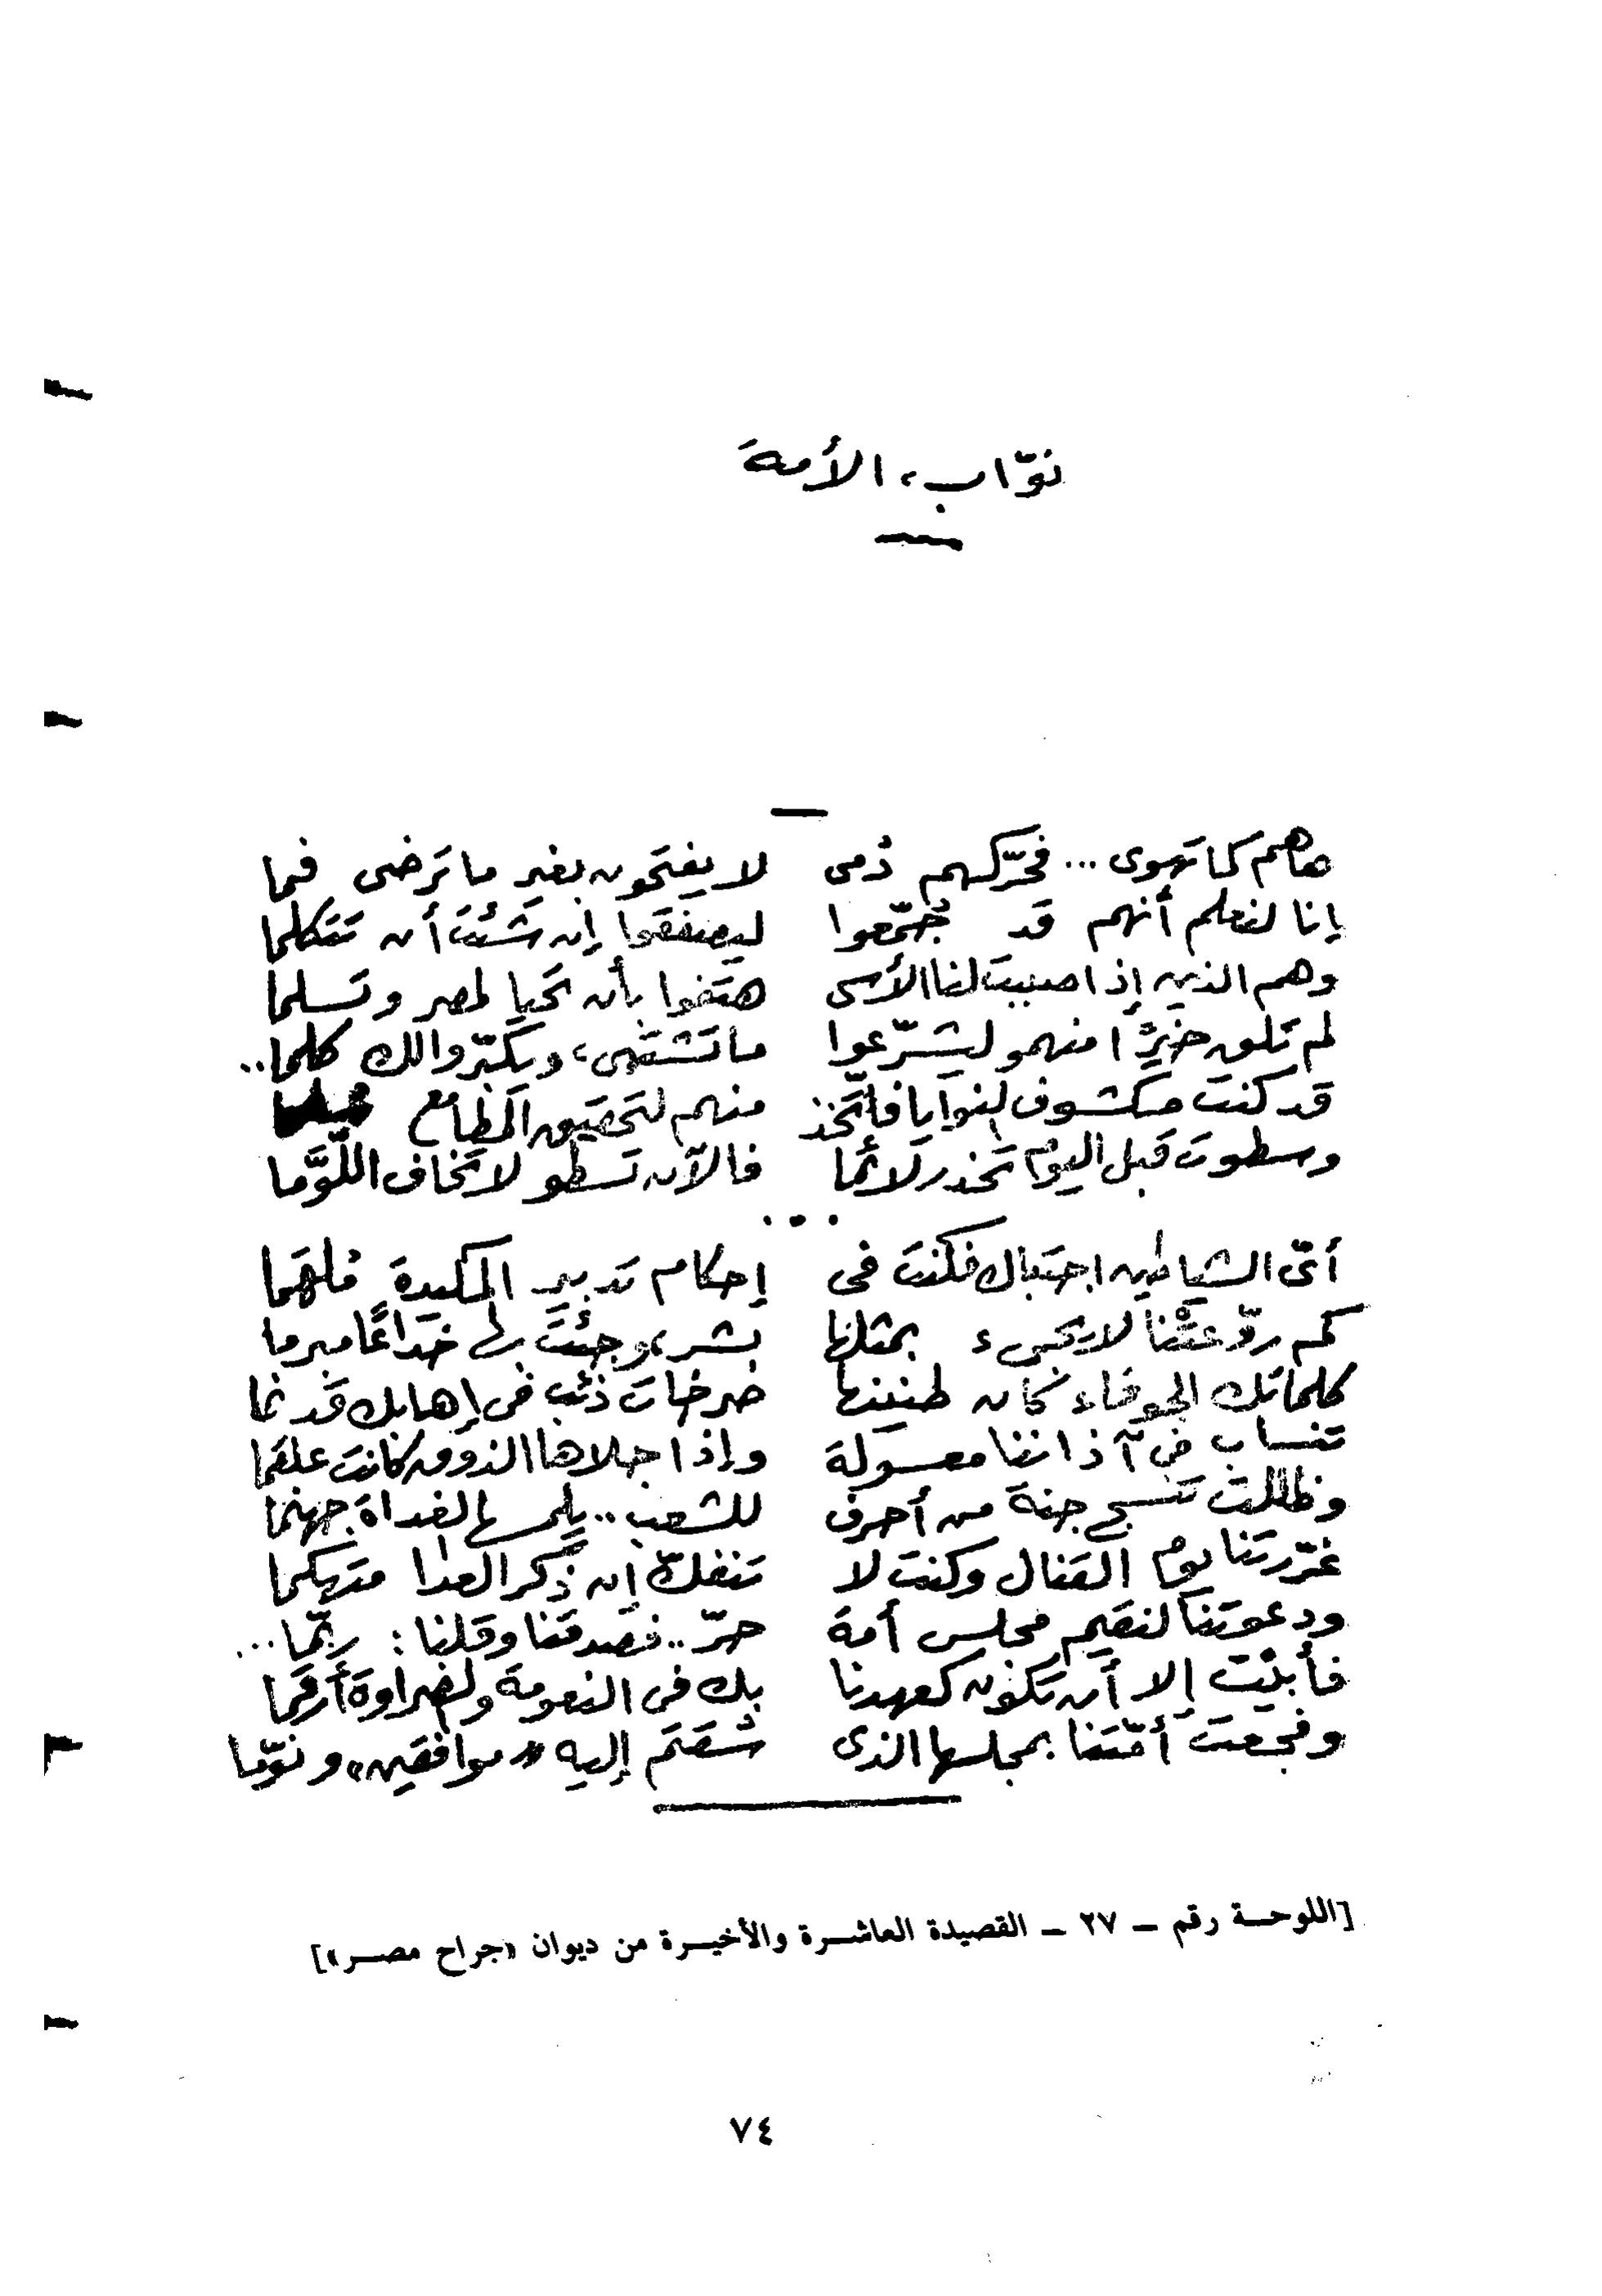 نوّاب، الأمة
هاهم كما تهوى ... فحرّكهم دُمى لا يفتحون بغير ما ترضى فما
إنا لنعلم أنهم قد جُمّعوا ليصفقوا إن شئتَ أن تتكلما
وهم الذين إذا صببتَ لنا الأسى هتفوا بأن تحيا لمصر وتسلما
لم تلق خيرًا منهمو ليشرّعوا ما تشتهى، ويكبّروا لك كلما..
قد كنت مكشوف النوايا فاتّخذ منهم لتحقيق المطامع
وسطوت قبل اليوم تحذر لائما فالآن تسطو لا تخاف اللوَّما
...
أىّ الشياطين اجتباك فكنت فى إحكام تدبير المكيدة ملهَما
كم روّعتْنا لا يجىء بمثلها بشر، وجئت بها خداعًا مبرما
كلماتك الجوفاء كان طنينها صرخات ذئب فى إهابك قد نما
تنساب فى آذاننا معسولة وإذا جلاها الذوق كانت علقما
وظللت تنسج جنة من أحرف للشعب .. يلمسها الغداة جهنما
غرّرتنا يوم القنال وكنت لا تنفكّ إن ذُكر العدا متهكما
ودعوتنا لنقيم مجلس أمة حرّ .. فصدقنا وقلنا : ربّما ...
فأبيْت إلا أن تكون كعهدنا بك فى النعومة والضراوة أرقما
وفجعت أمّتنا بمجلسها الذى سُقتَم إليه «موافقين» ونوّما
[اللوحة رقم – ٢٧ – القصيدة العاشرة والأخيرة من ديوان «جراح مصر»]
٧٤